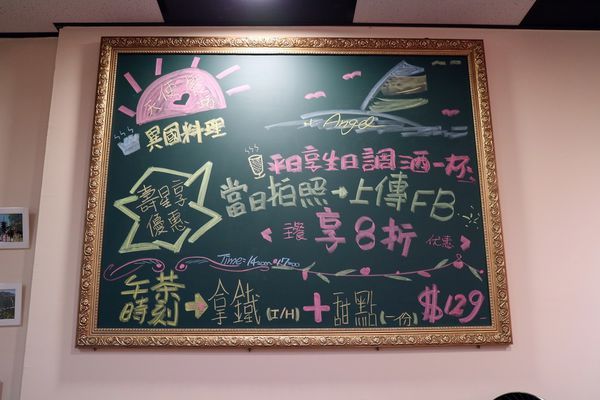 天使
異國料理
Angel
日享生日調酒一杯
壽星享
優惠
當日拍照→上傳FB
享8折 優惠
Time=14:00~17:00
午茶
時刻
→拿鐵(I/H)+甜點(一份) $129